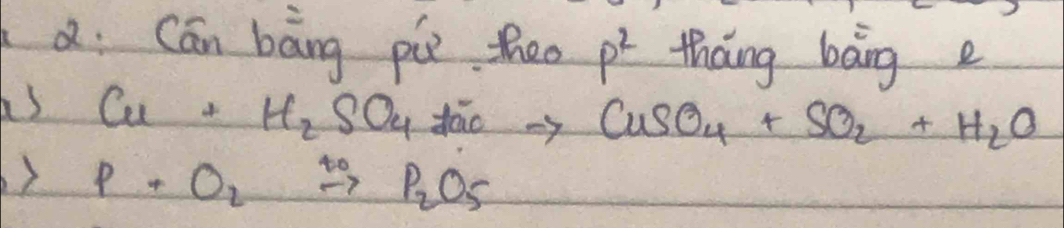 2: Cân bằng pứ theo p² thăng bằng e
a> Cu + H₂SO₄ đặc → CuSO₄ + SO₂ + H₂O
> P + O₂ t⁰→ P₂O₅